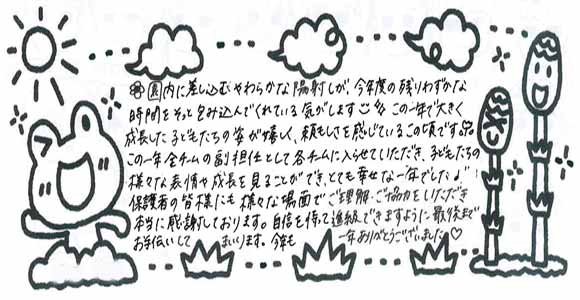 園内に差し込むやわらかな陽射しが、今年度の残りわずかな
時間をそっと包み込んでくれている気がします。この一年で大きく
成長した子どもたちの姿が嬉しく、頼もしさを感じているこの頃です。
この一年全チームの副担任として各チームに入らせていただき、子どもたちの
様々な表情や成長を見ることができ、とても幸せな一年でした♪
保護者の皆様にも様々な場面でご理解・ご協力をいただき
本当に感謝しております。自信を持って進級できますように最後まで
お手伝いしてまいります。今年も一年ありがとうございました♡